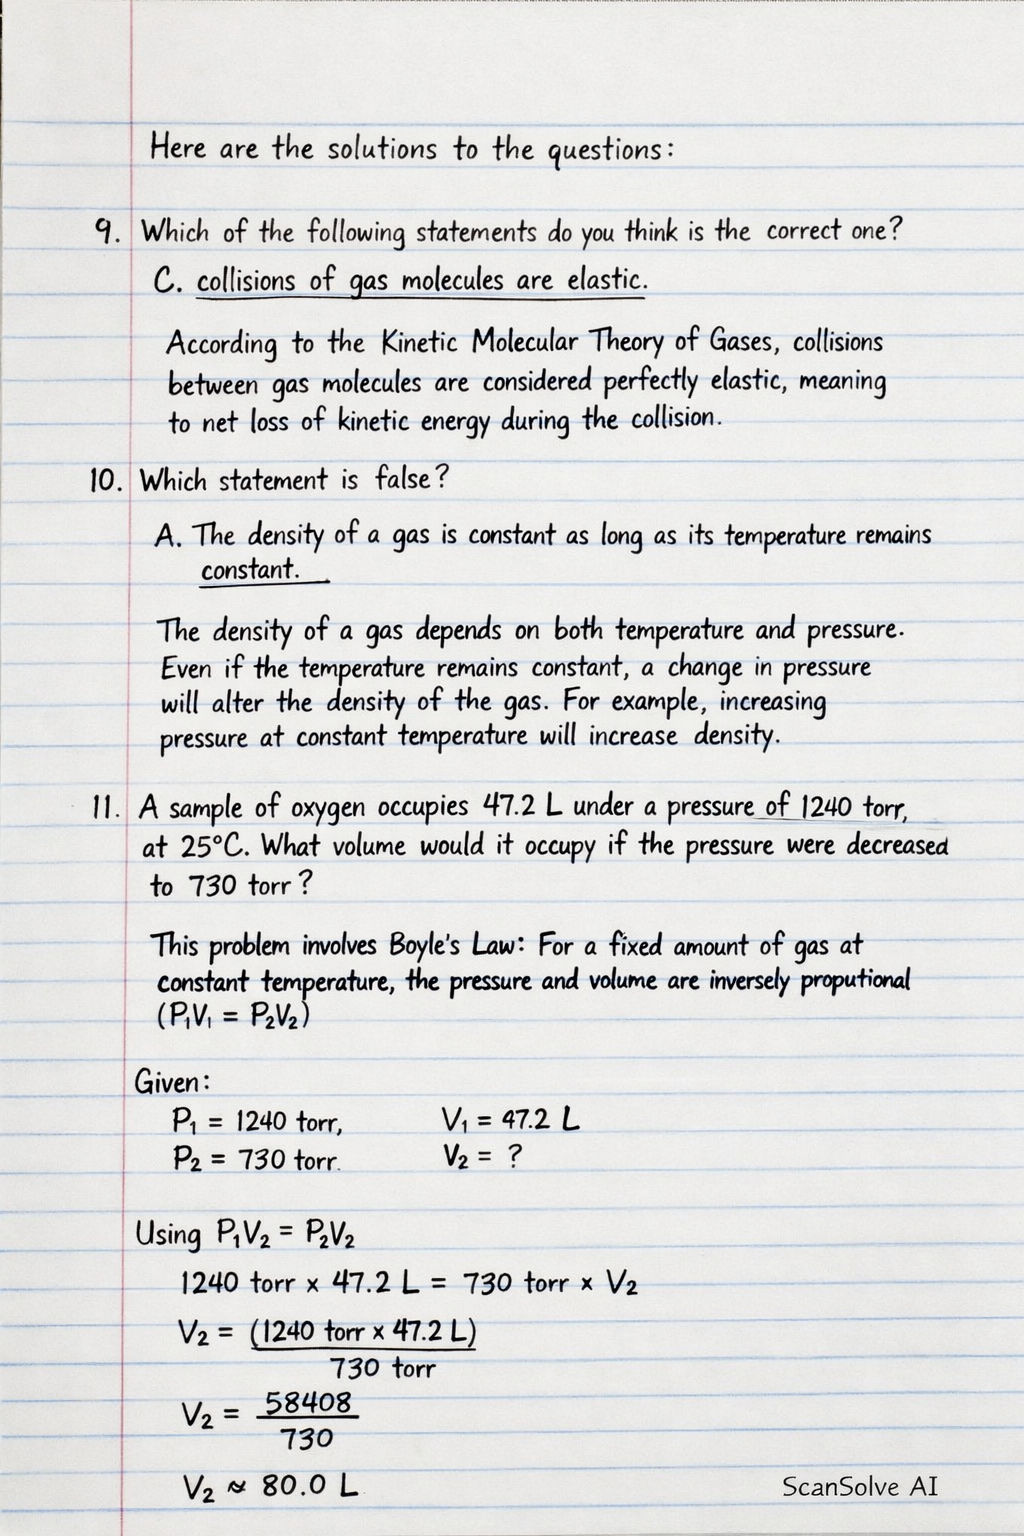 Here are the solutions to the questions:
9. Which of the following statements do you think is the correct one?
C. collisions of gas molecules are elastic.
According to the Kinetic Molecular Theory of Gases, collisions
between gas molecules are considered perfectly elastic, meaning
to net loss of kinetic energy during the collision.
10. Which statement is false?
A. The density of a gas is constant as long as its temperature remains
constant.
The density of a gas depends on both temperature and pressure.
Even if the temperature remains constant, a change in pressure
will alter the density of the gas. For example, increasing
pressure at constant temperature will increase density.
11. A sample of oxygen occupies 47.2 L under a pressure of 1240 torr,
at 25°C. What volume would it occupy if the pressure were decreased
to 730 torr?
This problem involves Boyle's Law: For a fixed amount of gas at
constant temperature, the pressure and volume are inversely proputional
(P₁V₁ = P₂V₂)
Given:
P₁ = 1240 torr, V₁ = 47.2 L
P₂ = 730 torr. V₂ = ?
Using P₁V₂ = P₂V₂
1240 torr x 47.2 L = 730 torr x V₂
V₂ = (1240 torr x 47.2 L)
730 torr
V₂ = 58408
730
V₂ ≈ 80.0 L
ScanSolve AI